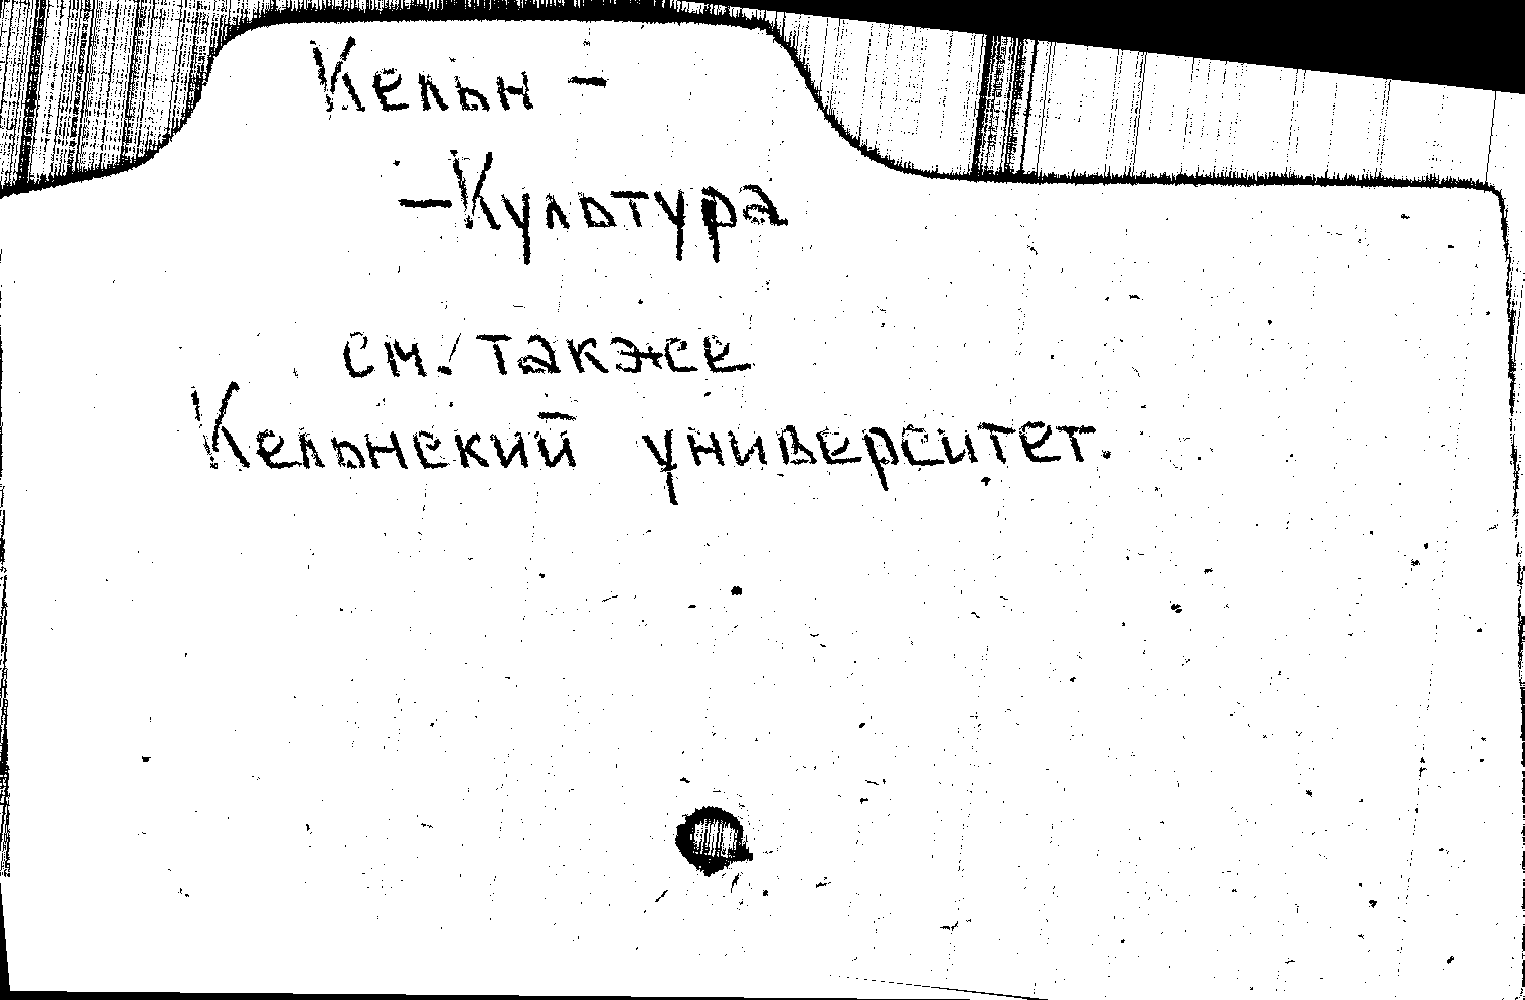 Кельн –
– Культура
см. также
Кельнский университет.